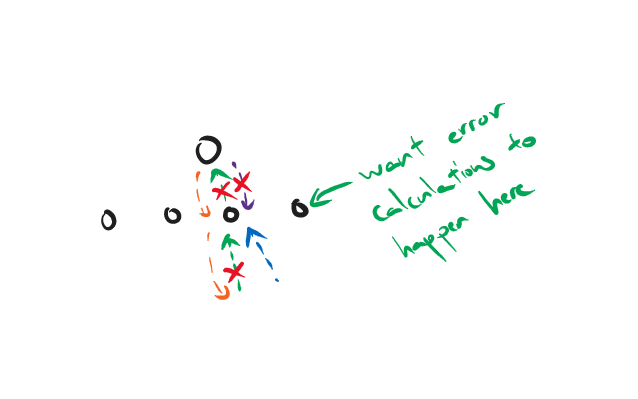 want error
calculations to
happen here